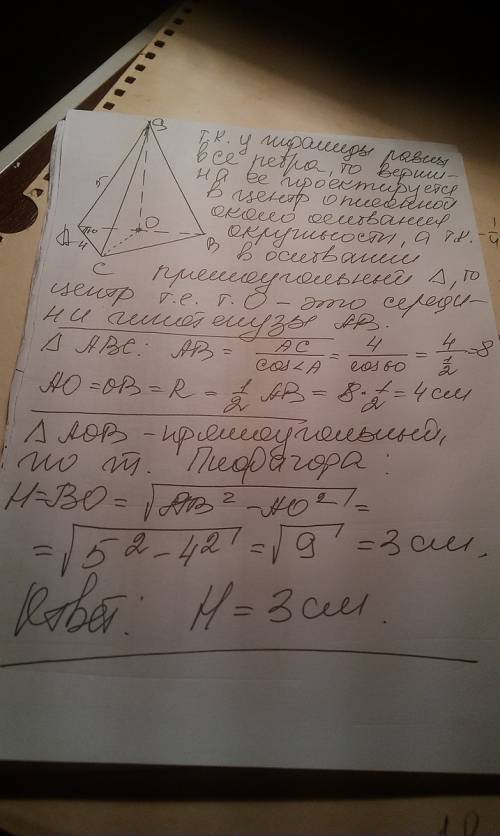 S
т.к. у пирамиды равны
все ребра, то верши-
на ее проектируется
в центр описанной
около основания
окружности, а т.к.
в основании
5
O
A
60
4
B
C
прямоугольный Δ, то
центр т.е. т. O - это середи-
ни гипотенузы AB.
Δ ABC: AB = AC/cos∠A = 4/cos60 = 4/½ = 8
AO = OB = R = ½ AB = 8·½ = 4 см
Δ AOB - прямоугольный,
по т. Пифагора:
H = BO = √AB² - AO² =
= √5² - 4² = √9 = 3 см.
Ответ: H = 3 см.